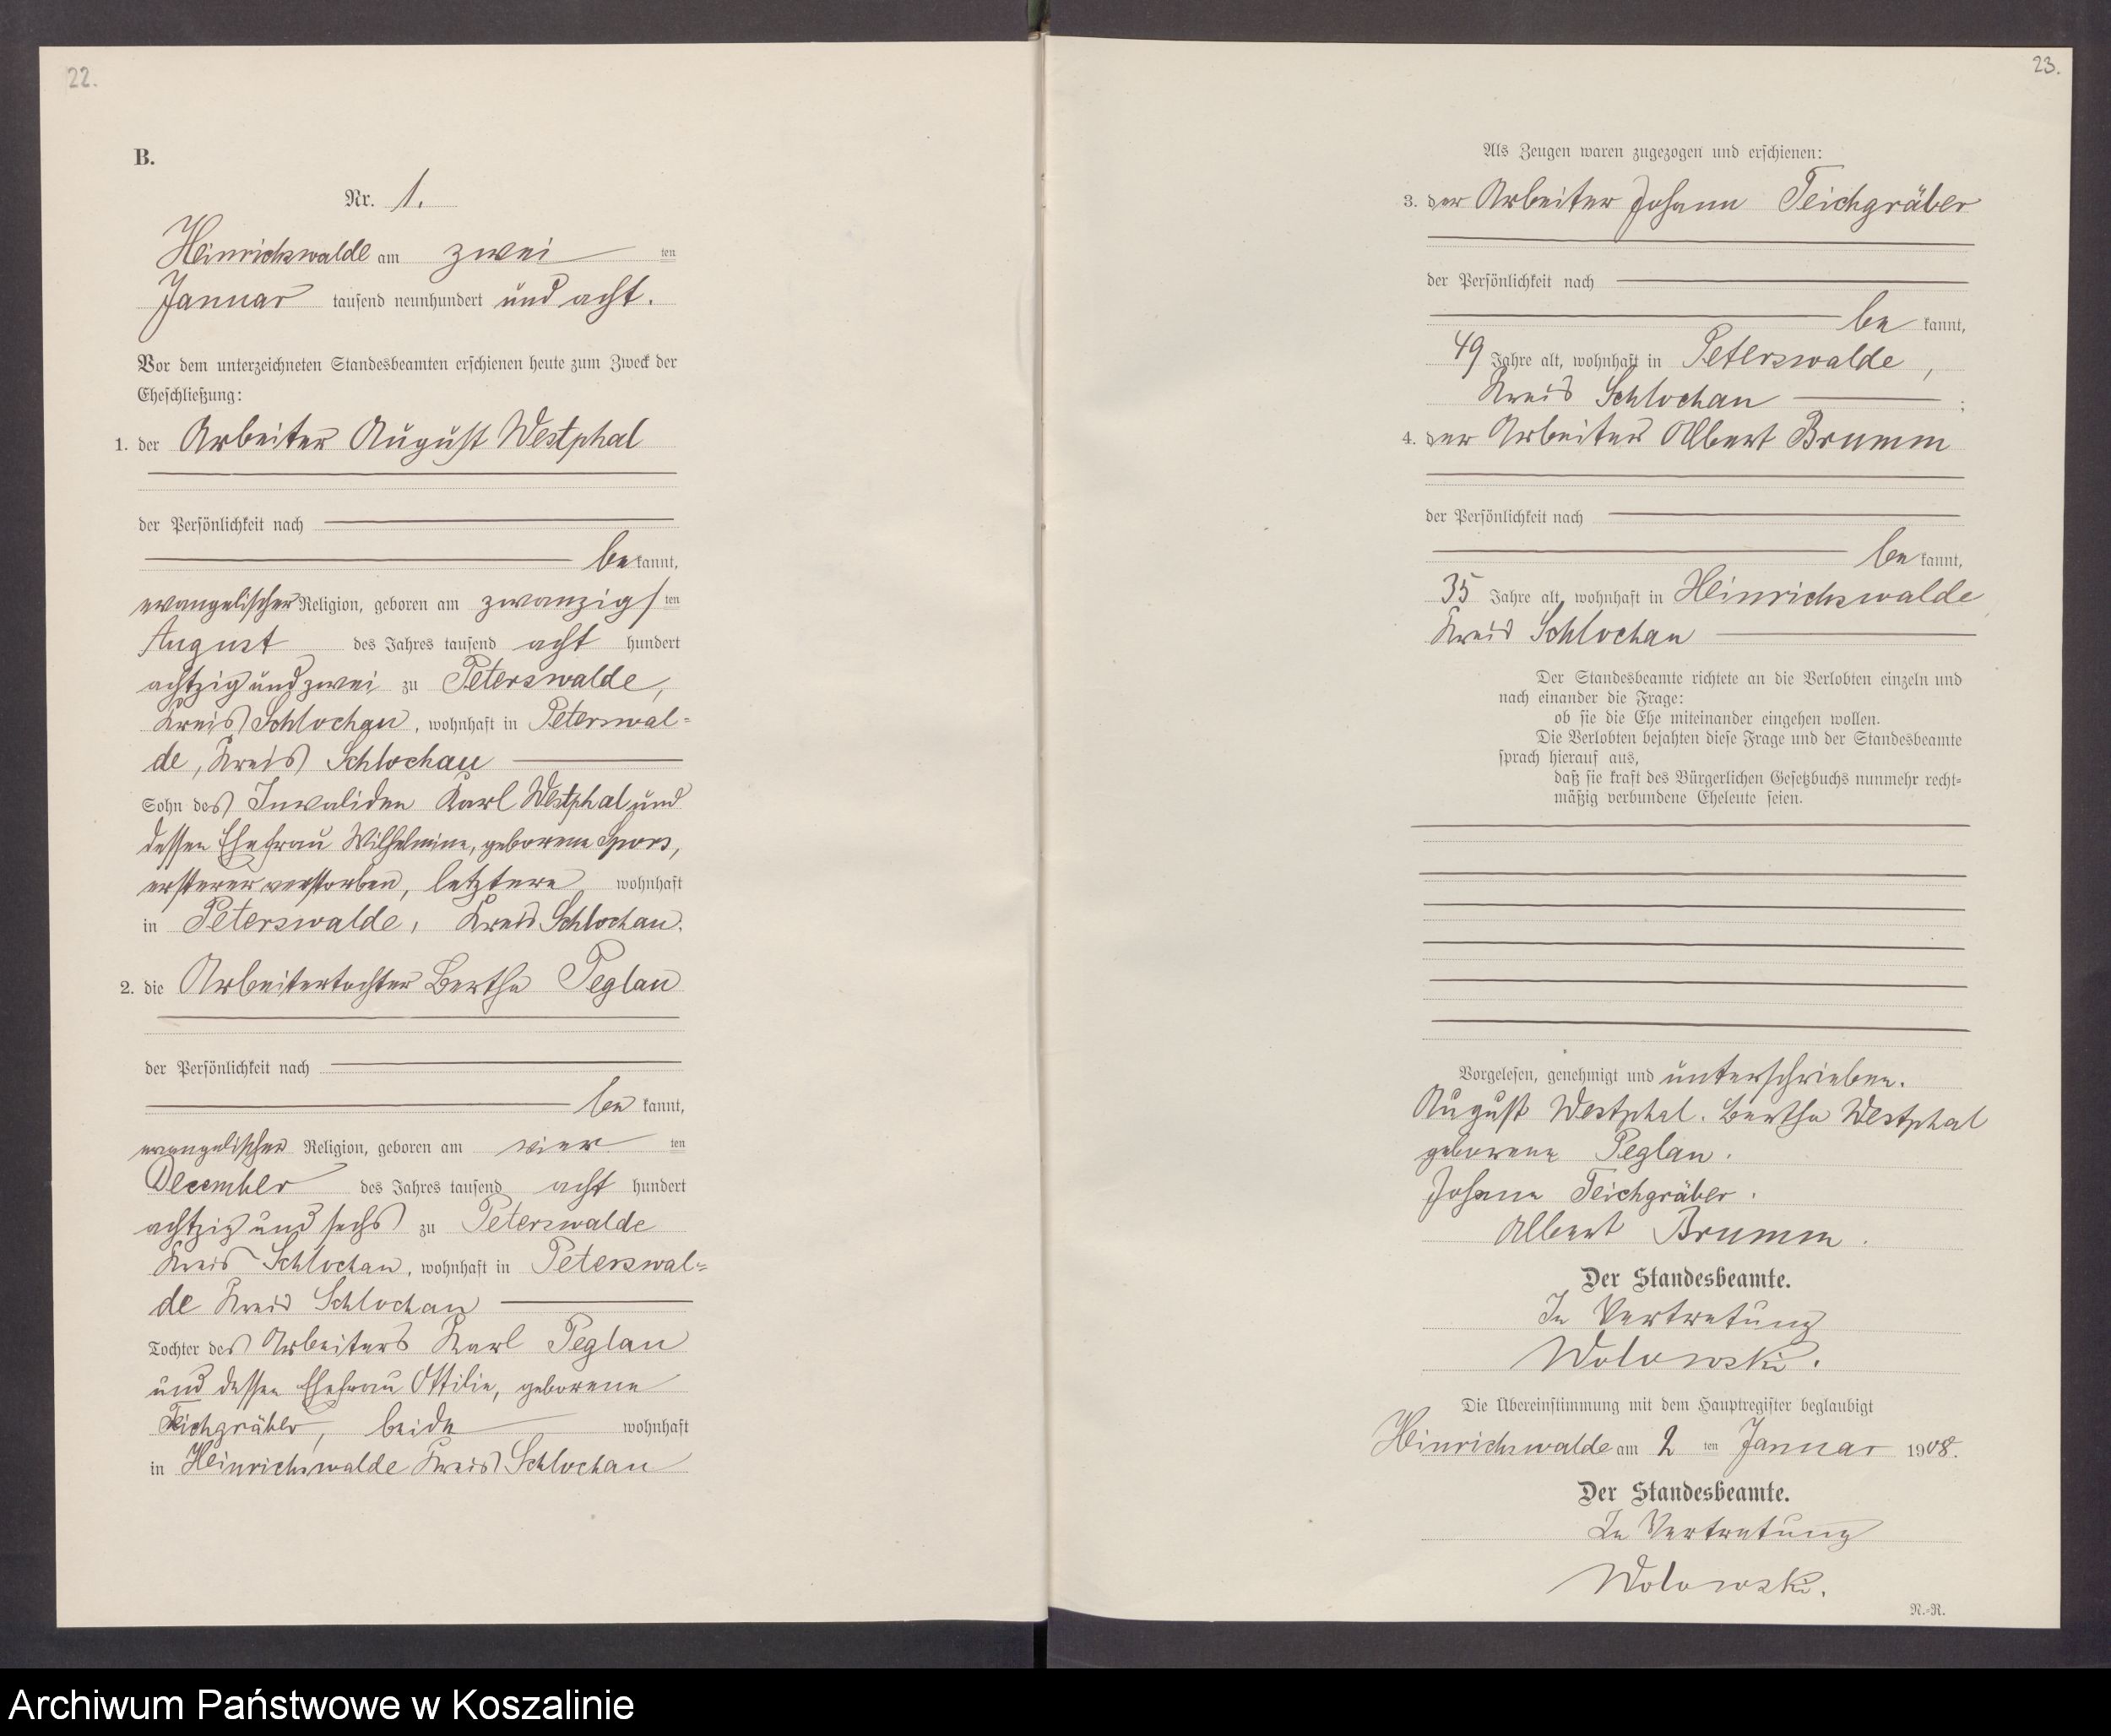 22.
B.
Nr. 1.
Heinrichswalde am zwei ten
Januar tausend neunhundert und acht.
Vor dem unterzeichneten Standesbeamten erschienen heute zum Zweck der
Eheschließung:
1. der Arbeiter August Westphal
der Persönlichkeit nach
be kannt,
evangelischer Religion, geboren am zwanzigs ten
August des Jahres tausend acht hundert
achtzig und zwei zu Peterswalde,
Kreis Schlochau, wohnhaft in Peterswal=
de, Kreis Schlochau
Sohn des Invaliden Karl Westphal und
dessen Ehefrau Wilhelmine, geborene Spors,
ersterer verstorben, letztere wohnhaft
in Peterswalde, Kreis Schlochau.
2. die Arbeitertochter Bertha Peglau
der Persönlichkeit nach
be kannt,
evangelischer Religion, geboren am vier ten
December des Jahres tausend acht hundert
achtzig und sechs zu Peterswalde
Kreis Schlochau, wohnhaft in Peterswal=
de Kreis Schlochau
Tochter des Arbeiters Karl Peglau
und dessen Ehefrau Ottilie, geborene
Teichgräber, beide wohnhaft
in Heinrichswalde Kreis Schlochau
23.
Als Zeugen waren zugezogen und erschienen:
3. der Arbeiter Johann Teichgräber
der Persönlichkeit nach
be kannt,
49 Jahre alt, wohnhaft in Peterswalde,
Kreis Schlochau ;
4. der Arbeiter Albert Brumm
der Persönlichkeit nach
be kannt,
35 Jahre alt, wohnhaft in Heinrichswalde
Kreis Schlochau
Der Standesbeamte richtete an die Verlobten einzeln und
nach einander die Frage:
ob sie die Ehe miteinander eingehen wollen.
Die Verlobten bejahten diese Frage und der Standesbeamte
sprach hierauf aus,
daß sie kraft des Bürgerlichen Gesetzbuchs nunmehr recht=
mäßig verbundene Eheleute seien.
Vorgelesen, genehmigt und unterschrieben.
August Westphal. Bertha Westphal
geborene Peglau.
Johann Teichgräber.
Albert Brumm.
Der Standesbeamte.
In Vertretung
Wolowski.
Die Übereinstimmung mit dem Hauptregister beglaubigt
Heinrichswalde am 2 ten Januar 1908.
Der Standesbeamte.
In Vertretung
Wolowski.
N.=R.
Archiwum Państwowe w Koszalinie